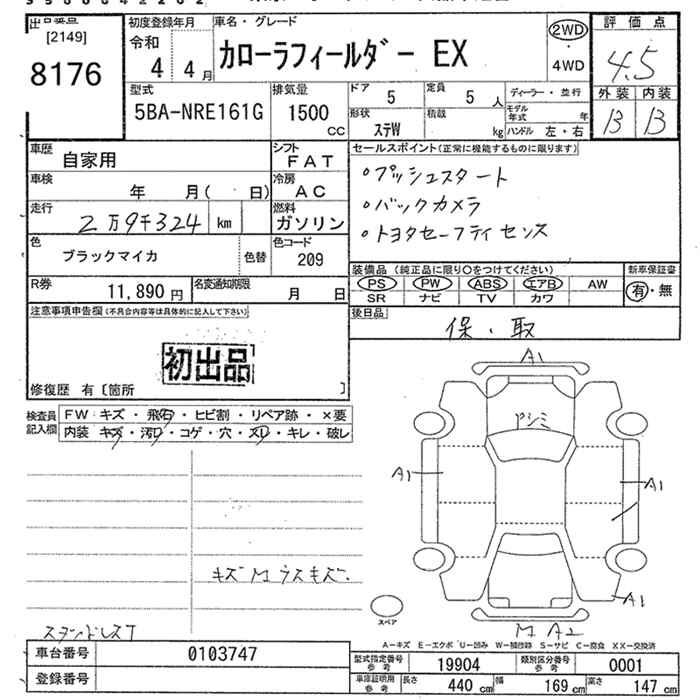 出品番号
[2149]
8176
初度登録年月
令和
4 4月
車名・グレード
カローラフィールダー EX
2WD
4WD
評価点
4.5
外装 内装
B B
型式
5BA-NRE161G
排気量
1500
CC
ドア 5
定員 5 人
形状 ステW
積載 kg
ディーラー・並行
モデル年式 年
ハンドル 左・右
車歴 自家用
シフト FAT
車検 年 月( 日)
冷房 AC
走行 2万9千324 km
燃料 ガソリン
色 ブラックマイカ 色替
色コード 209
R券 11,890 円
名変通知期限 月 日
セールスポイント(正常に機能するものに限ります)
○プッシュスタート
○バックカメラ
○トヨタセーフティセンス
装備品 (純正品に限り○をつけてください)
PS PW ABS エアB AW
SR ナビ TV カワ
新車保証書
有・無
後日品
保・取
注意事項申告欄(不具合内容等は具体的に記入して下さい)
初出品
修復歴 有〔箇所 〕
検査員記入欄
FW キズ・飛石・ヒビ割・リペア跡・×要
内装 キズ・汚レ・コゲ・穴・スレ・キレ・破レ
A1
A1
A1
A1
キズM ウスキズ
M A2
スペア
A-キズ E-エクボ U-凹み W-補修跡 S-サビ C-腐食 XX-交換済
車台番号 0103747
登録番号
型式指定番号 参考 19904
類別区分番号 参考 0001
車庫証明用 参考 長さ 440 cm 幅 169 cm 高さ 147 cm